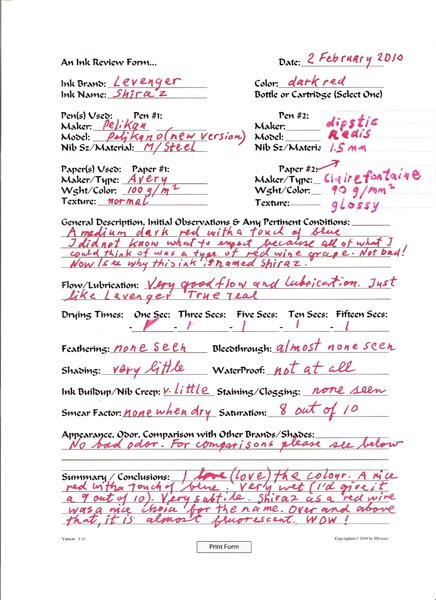 An Ink Review Form... Date: 2 February 2010
Ink Brand: Levenger Color: dark red
Ink Name: Shiraz Bottle or Cartridge (Select One)
Pen(s) Used: Pen #1: Pen #2:
Maker: Pelikan Maker: dipstic
Model: Pelikano (new version) Model: Redis
Nib Sz/Material: M/Steel Nib Sz/Material: 1.5mm
Paper(s) Used: Paper #1: Paper #2:
Maker/Type: Avery Maker/Type: Clairefontaine
Wght/Color: 100 g/m² Wght/Color: 90 g/mm²
Texture: normal Texture: glossy
General Description, Initial Observations & Any Pertinent Conditions:
A medium dark red with a touch of blue
I did not know what to expect because all of what I
could think of was a type of red wine grape. Not bad!
Now I see why this ink is named Shiraz.
Flow/Lubrication: Very good flow and lubrication. Just
like Lavenger True Teal
Drying Times: One Sec: Three Secs: Five Secs: Ten Secs: Fifteen Secs:
Feathering: none seen Bleedthrough: almost none seen
Shading: very little WaterProof: not at all
Ink Buildup/Nib Creep: v. little Staining/Clogging: none seen
Smear Factor: none when dry Saturation: 8 out of 10
Appearance, Odor, Comparison with Other Brands/Shades:
No bad odor. For comparisons please see below
Summary / Conclusions: I love (love) the colour. A nice
red with a touch of blue. Very wet (I'd give it
a 9 out of 10). Very subtile. Shiraz as a red wire
was a nice choia for the name. Over and above
that, it is almost fluorescent. WOW!
Version: 3.10 Copyrighted © 2008 by
Print Form